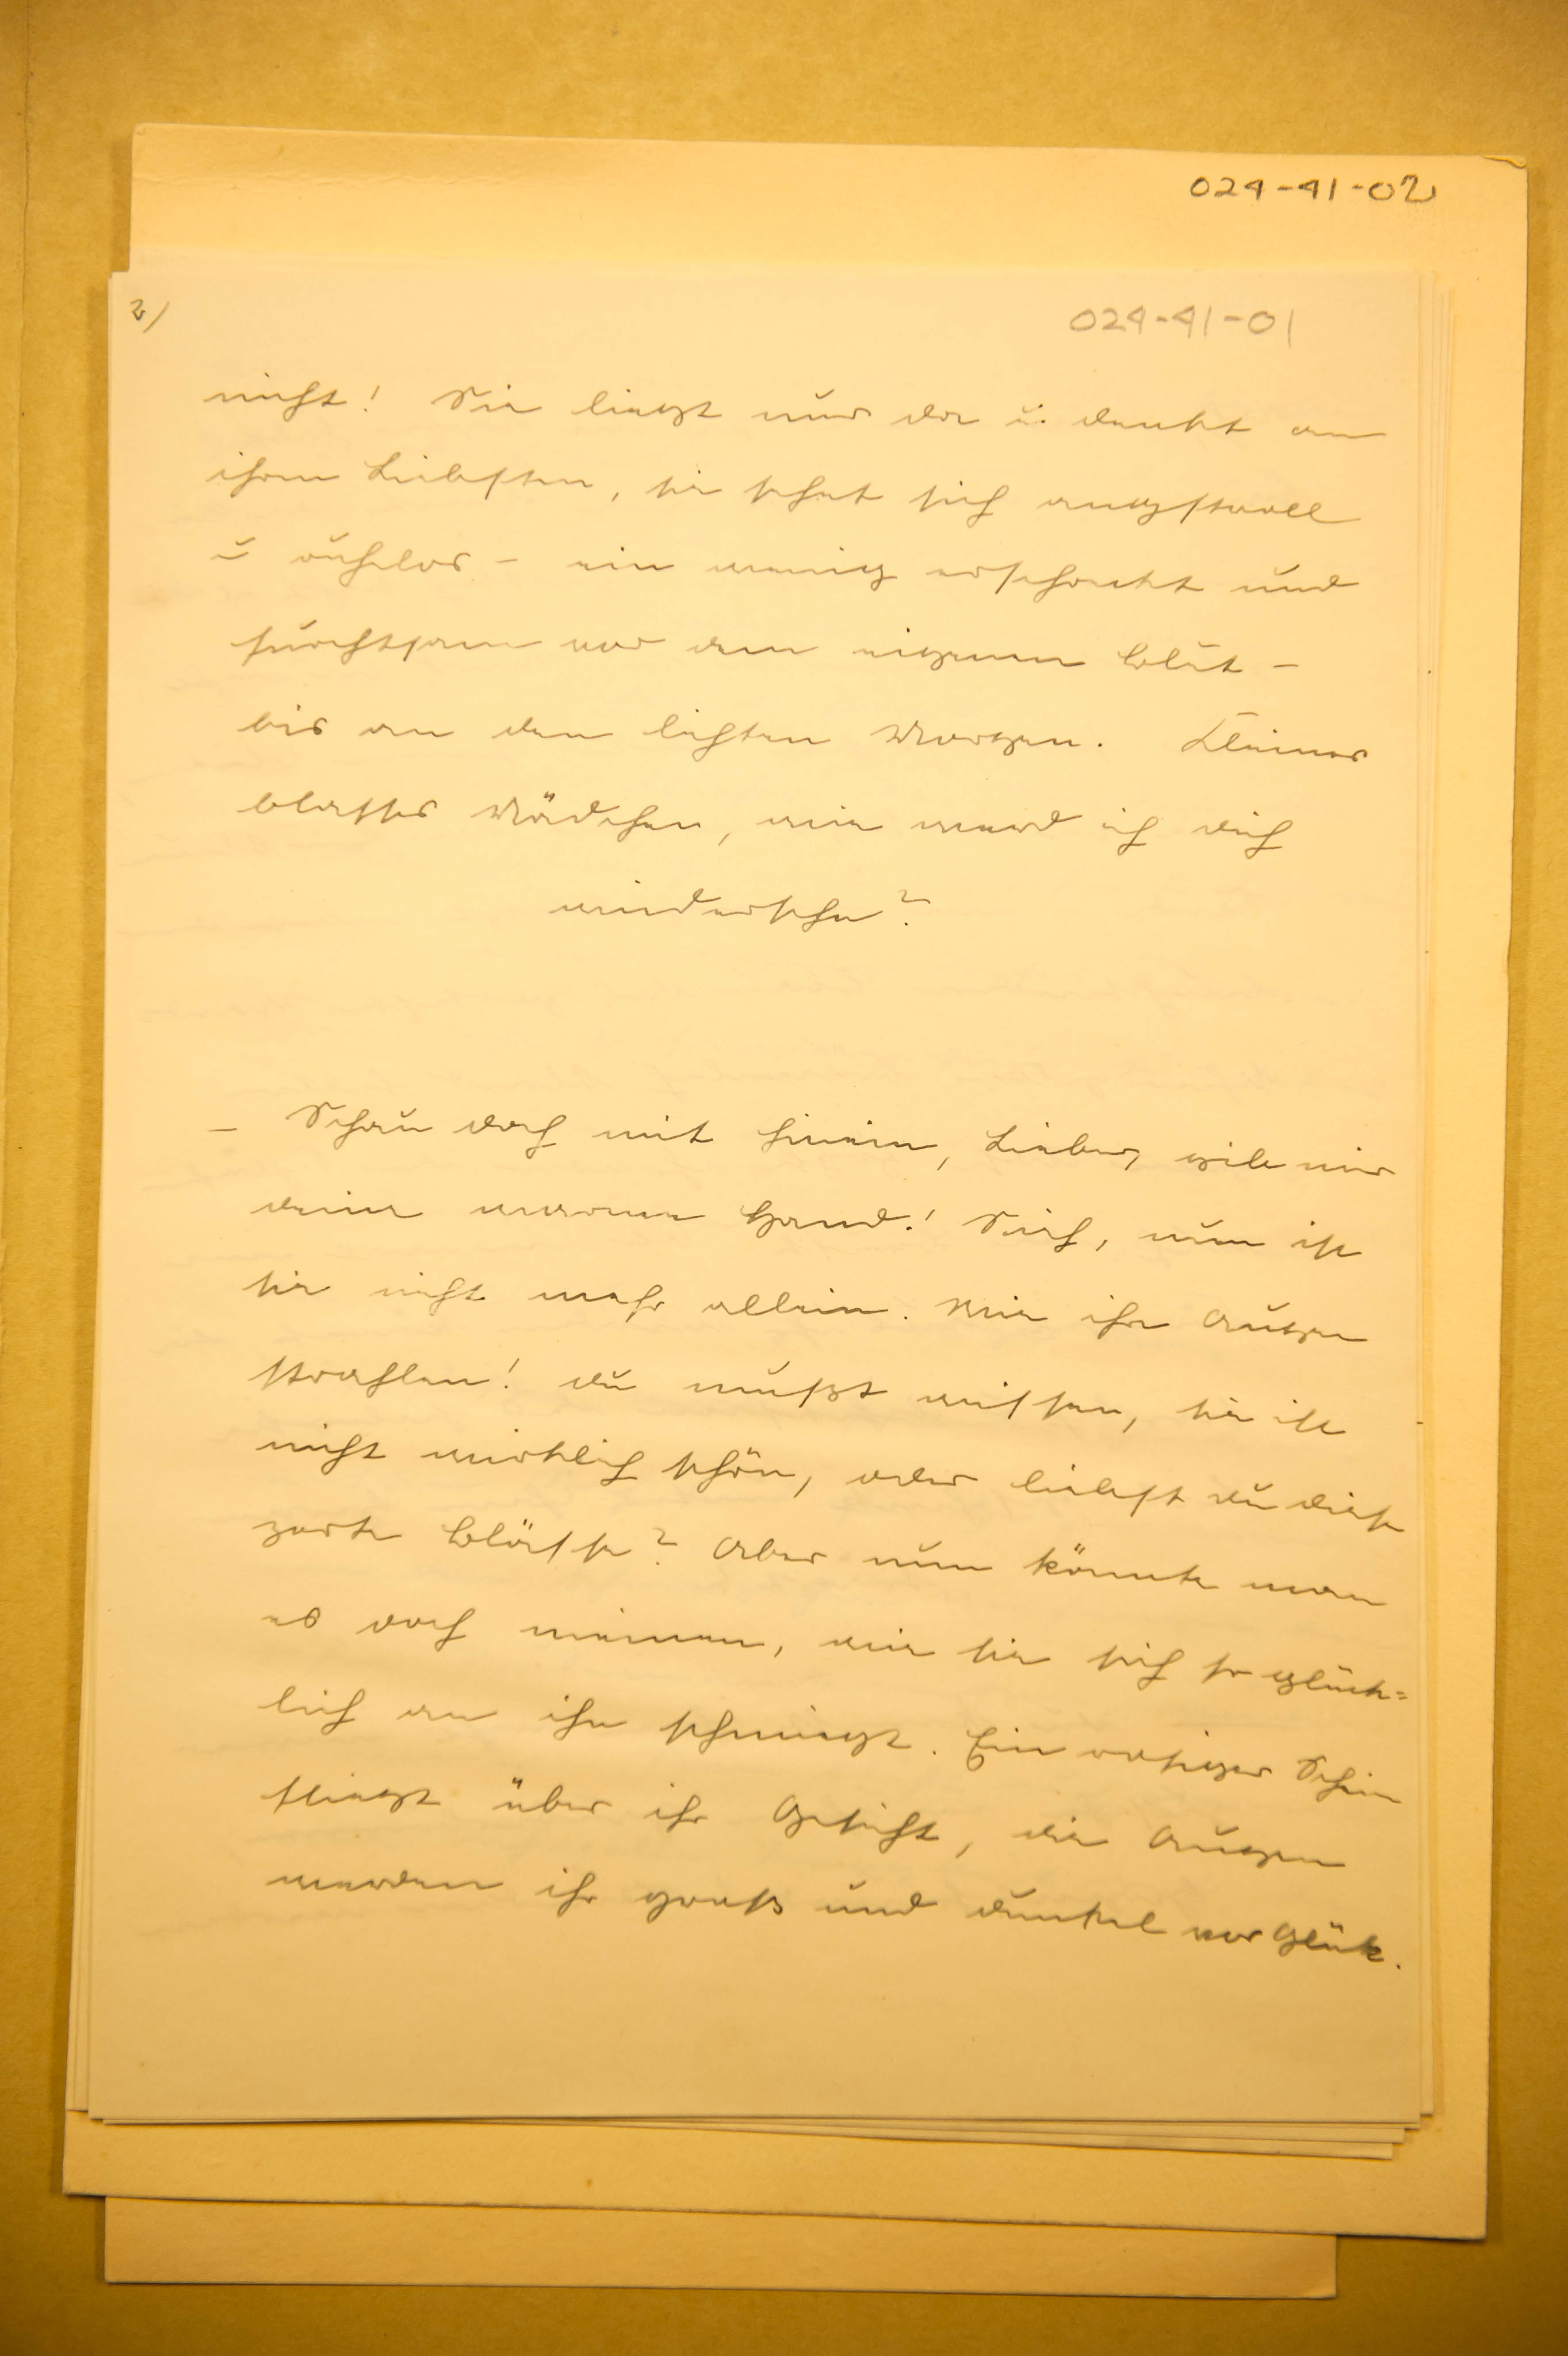 024-41-02
2/
024-41-01
nicht! Sie liegt nur da u. denkt an
ihren Liebsten, sie sehnt sich angstvoll
u ruhelos - ein wenig erschreckt und
furchtsam vor dem eigenen Blut -
bis an den lichten Morgen. Kleines
blasses Mädchen, wie werd ich dich
wiedersehn?
– Schau doch mit hinein, Lieber, gib mir
deine warme Hand! Sieh, nun ist
sie nicht mehr allein. Wie ihre Augen
strahlen! Du mußt wissen, sie ist
nicht wirklich schön, oder liebst du diese
zarte Blässe? Aber nun könnte man
es doch meinen, wie sie sich so glück=
lich an ihn schmiegt. Ein rosiger Schein
fliegt über ihr Gesicht, die Augen
werden ihr groß und dunkel vor Glück.